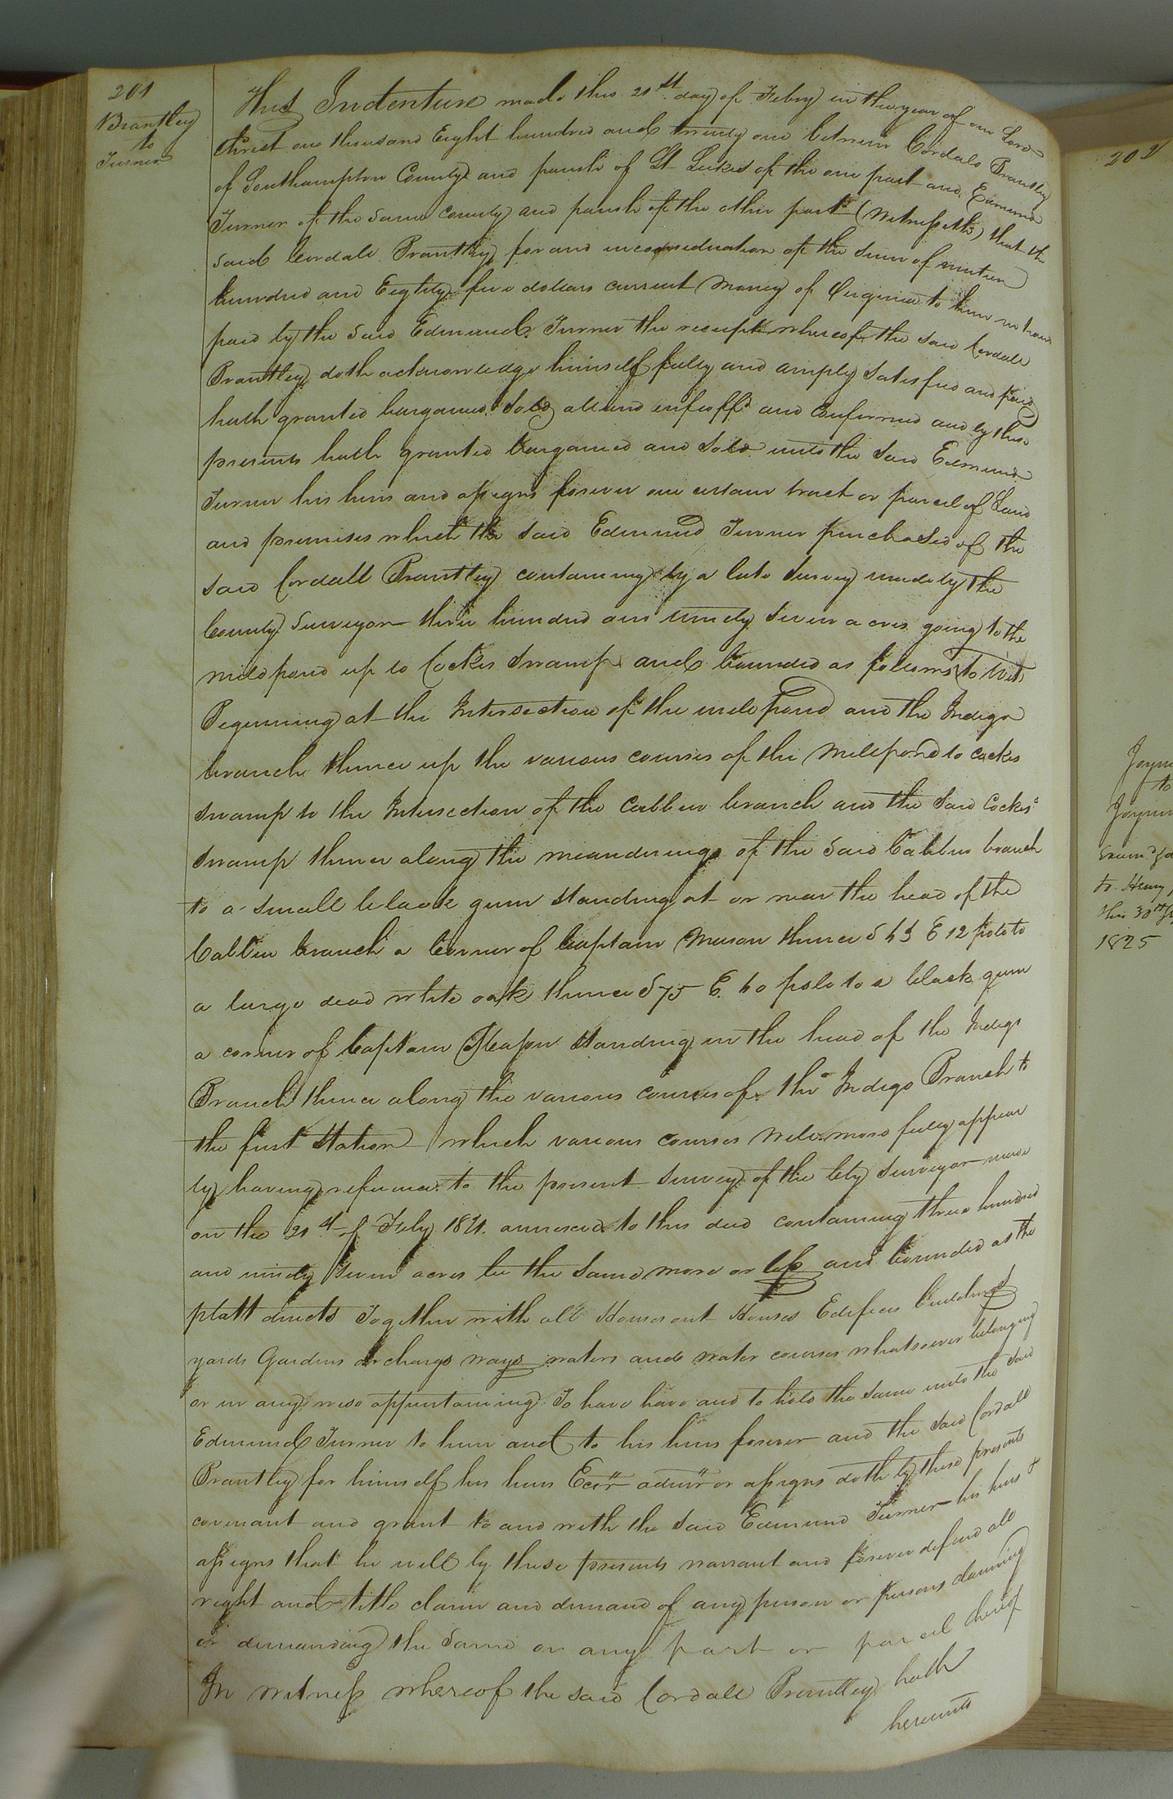 201
Brantley
to
Turner
This Indenture made this 21st day of Feby in the year of our Lord
Christ one thousand Eight hundred and twenty one between Cordale Brantley
of Southampton County and parish of St Lukes of the one part and Edmund
Turner of the same county and parish of the other part (Witnesseth) that the
said Cordale Brantley for and in consideration of the sum of nineteen
hundred and Eighty five dollars current money of Virginia to him in hand
paid by the said Edmund Turner the receipt whereof the said Cordale
Brantley doth acknowledge himself fully and amply satisfied and paid
hath granted bargained sold aliend enfeoffd and Confirmed and by these
presents hath granted bargained and sold unto the said Edmund
Turner his heirs and assigns forever one certain tract or parcel of Land
and premises which the said Edmund Turner purchased of the
said Cordall Brantley containing by a late survey made by the
County Surveyor three hundred and ninety seven acres going to the
millpond up to Cockes Swamp and bounded as follows to wit
Beginning at the Intersection of the mill pond and the Indigo
branch thence up the various courses of the Millpond to cockes
swamp to the Intersection of the Cabbin branch and the said Cockes
swamp thence along the meanderings of the said Cabbin branch
to a small black gum standing at or near the head of the
Cabbin branch a Corner of Captain Mason thence S E 12 pole to
a large dead white oak thence S 75 E. 60 pole to a black gum
a corner of Captain Mason standing in the head of the Indigo
Branch thence along the various courses of the Indigo Branch to
the first station which various courses will more fully appear
by having reference to the present survey of the Cty Surveyor made
on the 21st of Feby 1821. annexed to this deed containing three hundred
and ninety seven acres be the same more or less and bounded as the
platt directs Together with all Houses out Houses Edifices buildings
yards Gardens orchargs ways waters and water courses whatsoever belonging
or in any wise appertaining To have have and to hold the same unto the said
Edmund Turner to him and to his heirs forever and the said Cordale
Brantley for himself his heirs Ecors admrs or assigns doth by these presents
covenant and grant to and with the said Edmund Turner his heirs &
assigns that he will by these presents warrant and forever defend all
right and title claim and demand of any person or persons claiming
or demanding the same or any part or parcel thereof
In witness whereof the said Cordall Brantley hath
hereunto
202
to
to Henry
this 30th
1825